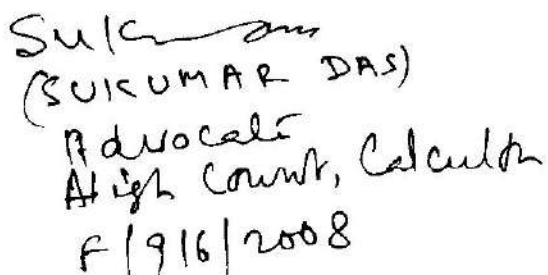 (SUKUMAR DAS)
Advocate
High Court, Calcutta
F/916/2008